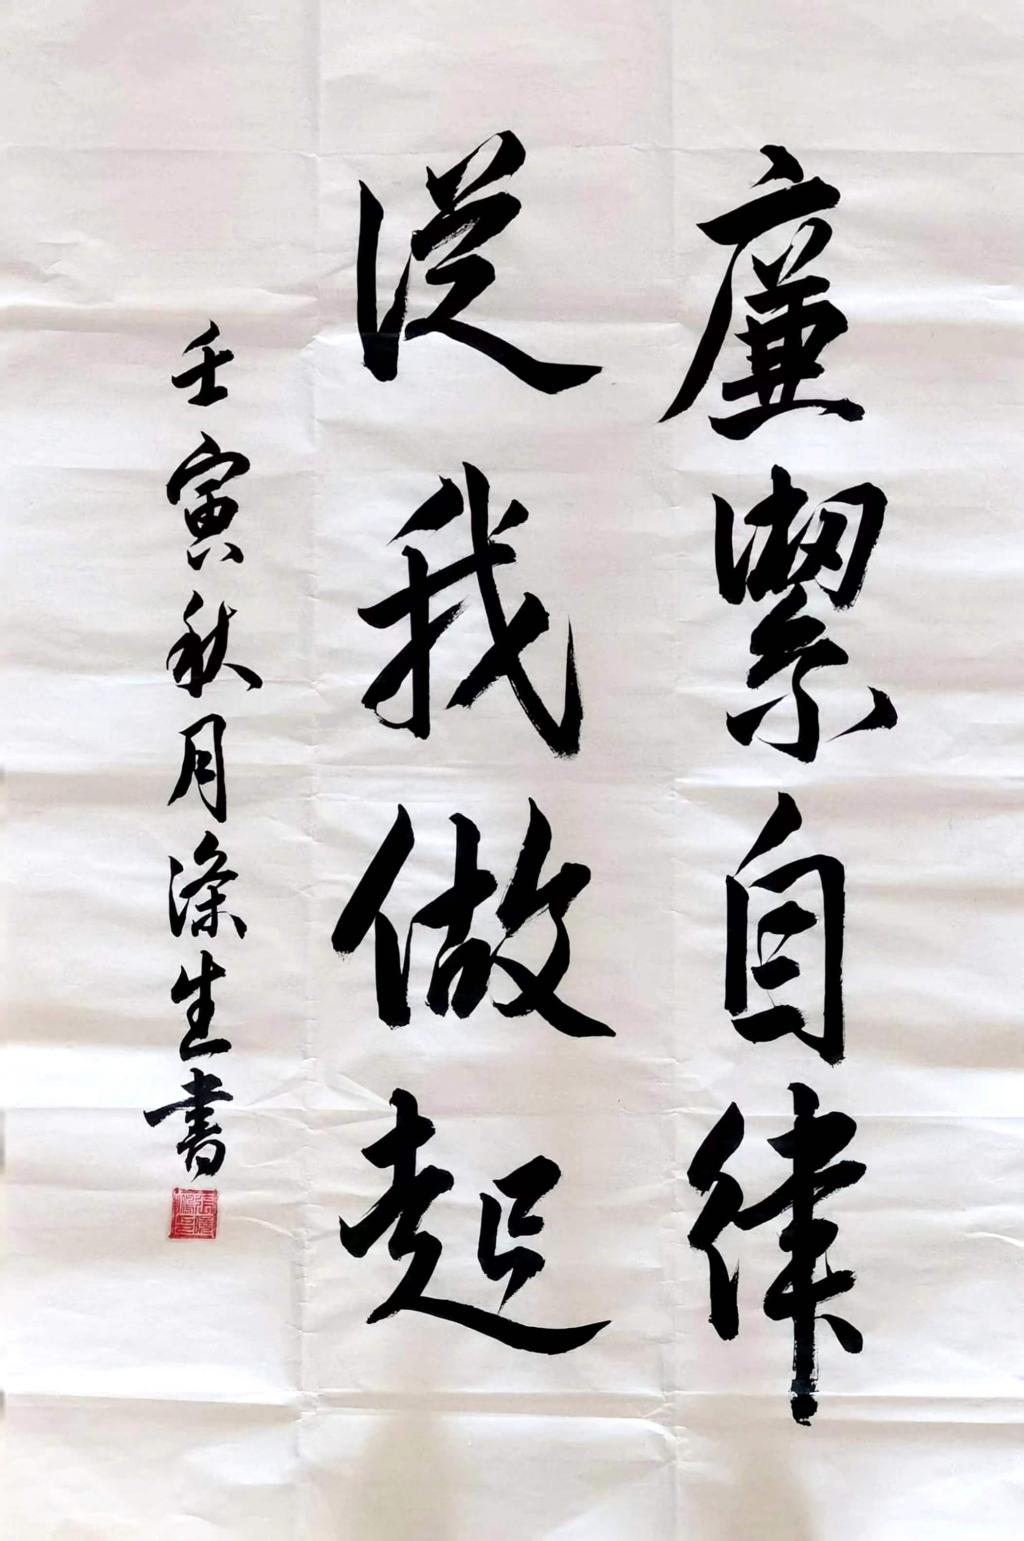 廉潔自律
從我做起
壬寅秋月滌生書